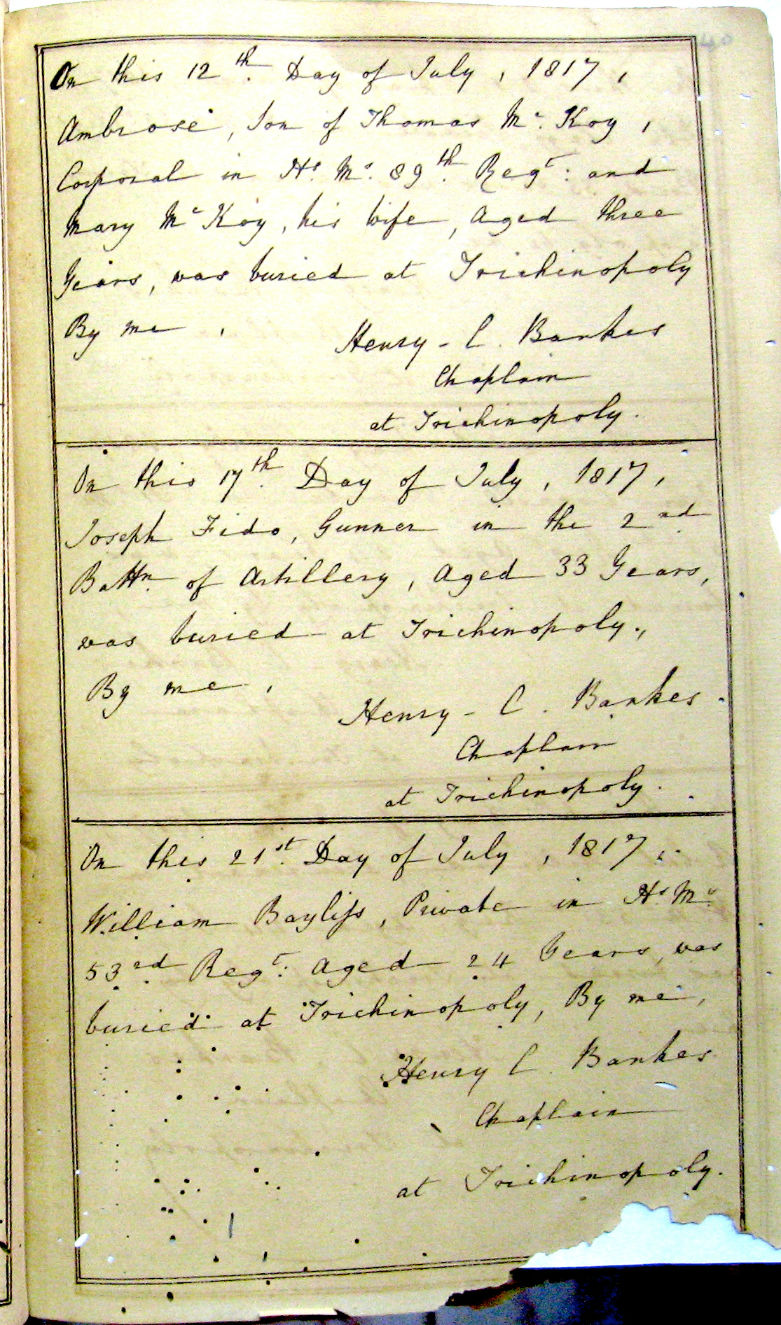 On this 12th Day of July, 1817,
Ambrose, Son of Thomas Mc Koy,
Corporal in Hs. Ms. 89th Regt: and
Mary Mc Koy, his Wife, Aged three
Years, was buried at Trichinopoly
By me,
Henry - C. Bankes
Chaplain
at Trichinopoly.
On this 17th Day of July, 1817,
Joseph Fido, Gunner in the 2nd
Battn. of Artillery, Aged 33 Years,
was buried at Trichinopoly.,
By me,
Henry - C. Bankes.
Chaplain
at Trichinopoly.
On this 21st. Day of July, 1817,
William Bayliss, Private in Hs Ms
53rd Regt: Aged 24 Years, was
buried at Trichinopoly, By me,
Henry C. Bankes
Chaplain
at Trichinopoly.